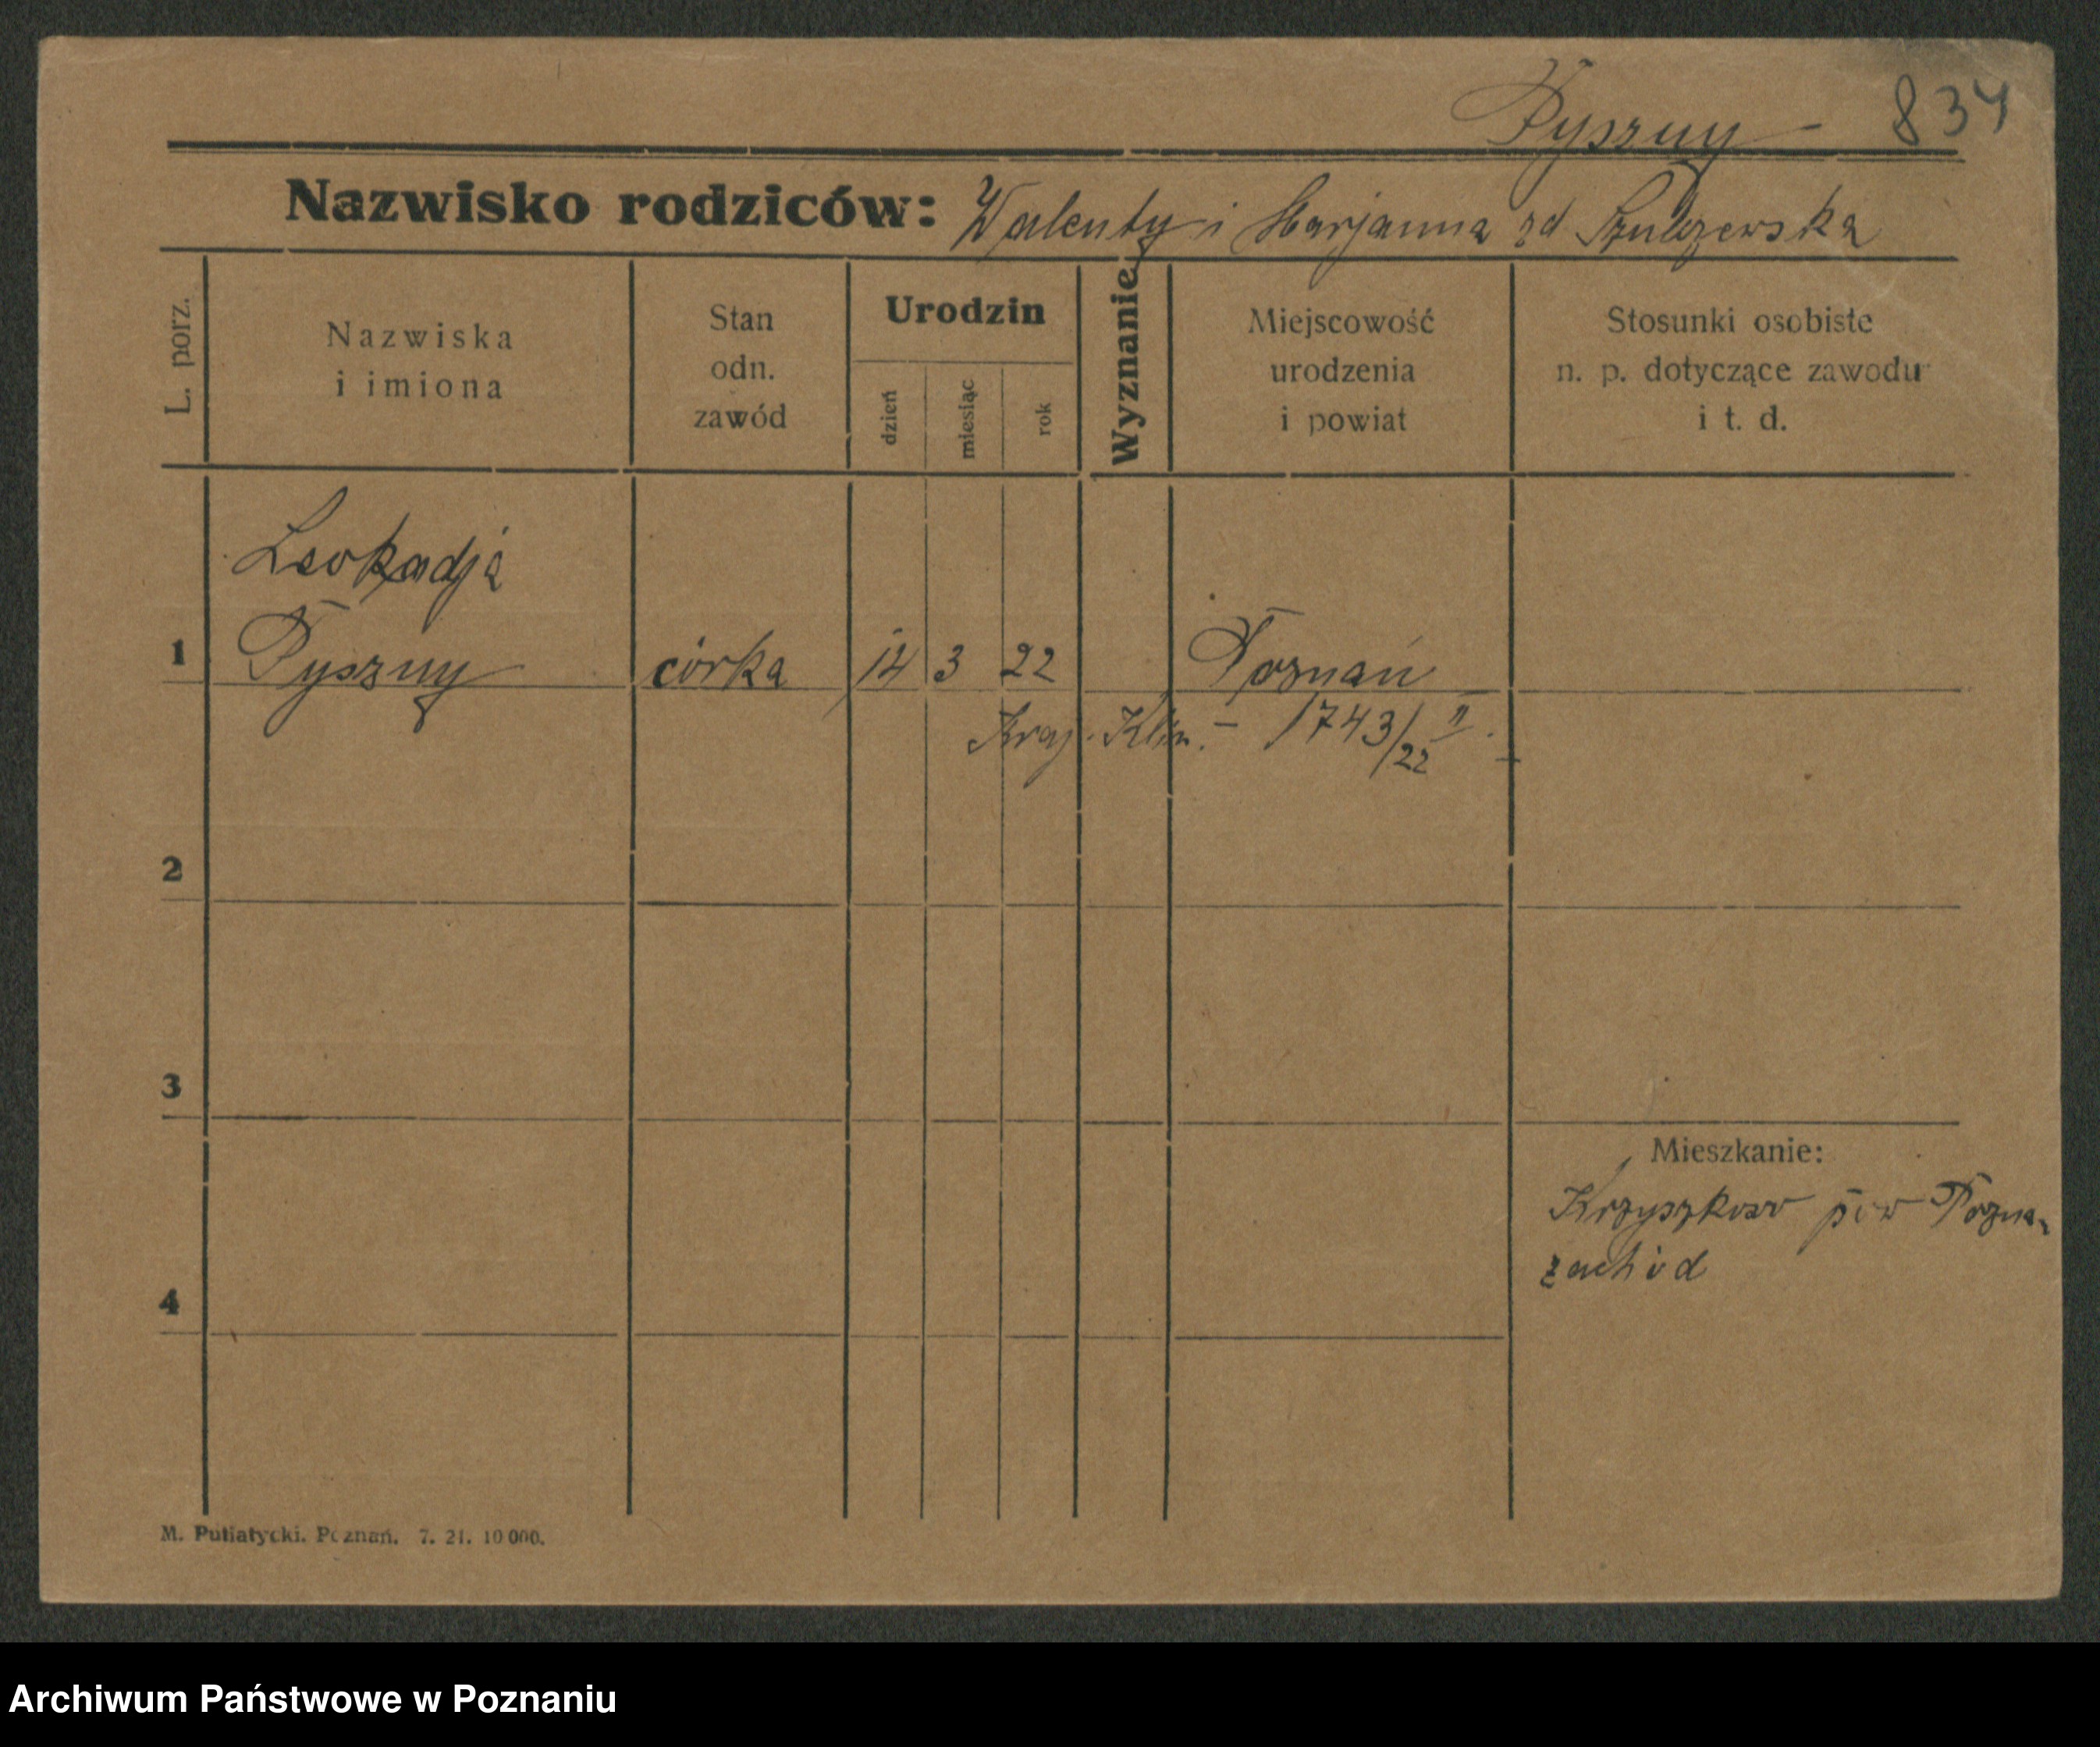 Pyszny 834
Nazwisko rodziców: Walenty i Marjanna zd Szulczewska
L. porz.
Nazwiska
i imiona
Stan
odn.
zawód
Urodzin
dzień
miesiąc
rok
Wyznanie
Miejscowość
urodzenia
i powiat
Stosunki osobiste
n. p. dotyczące zawodu
i t. d.
Leokadja
1 Pyszny córka 14 3 22 Poznań
Kraj. Klin. - 1743/22 II.
2
3
Mieszkanie:
Krzyszkowo pow Pozna-
zachód
4
M. Putiatycki. Poznań. 7. 21. 10 000.
Archiwum Państwowe w Poznaniu